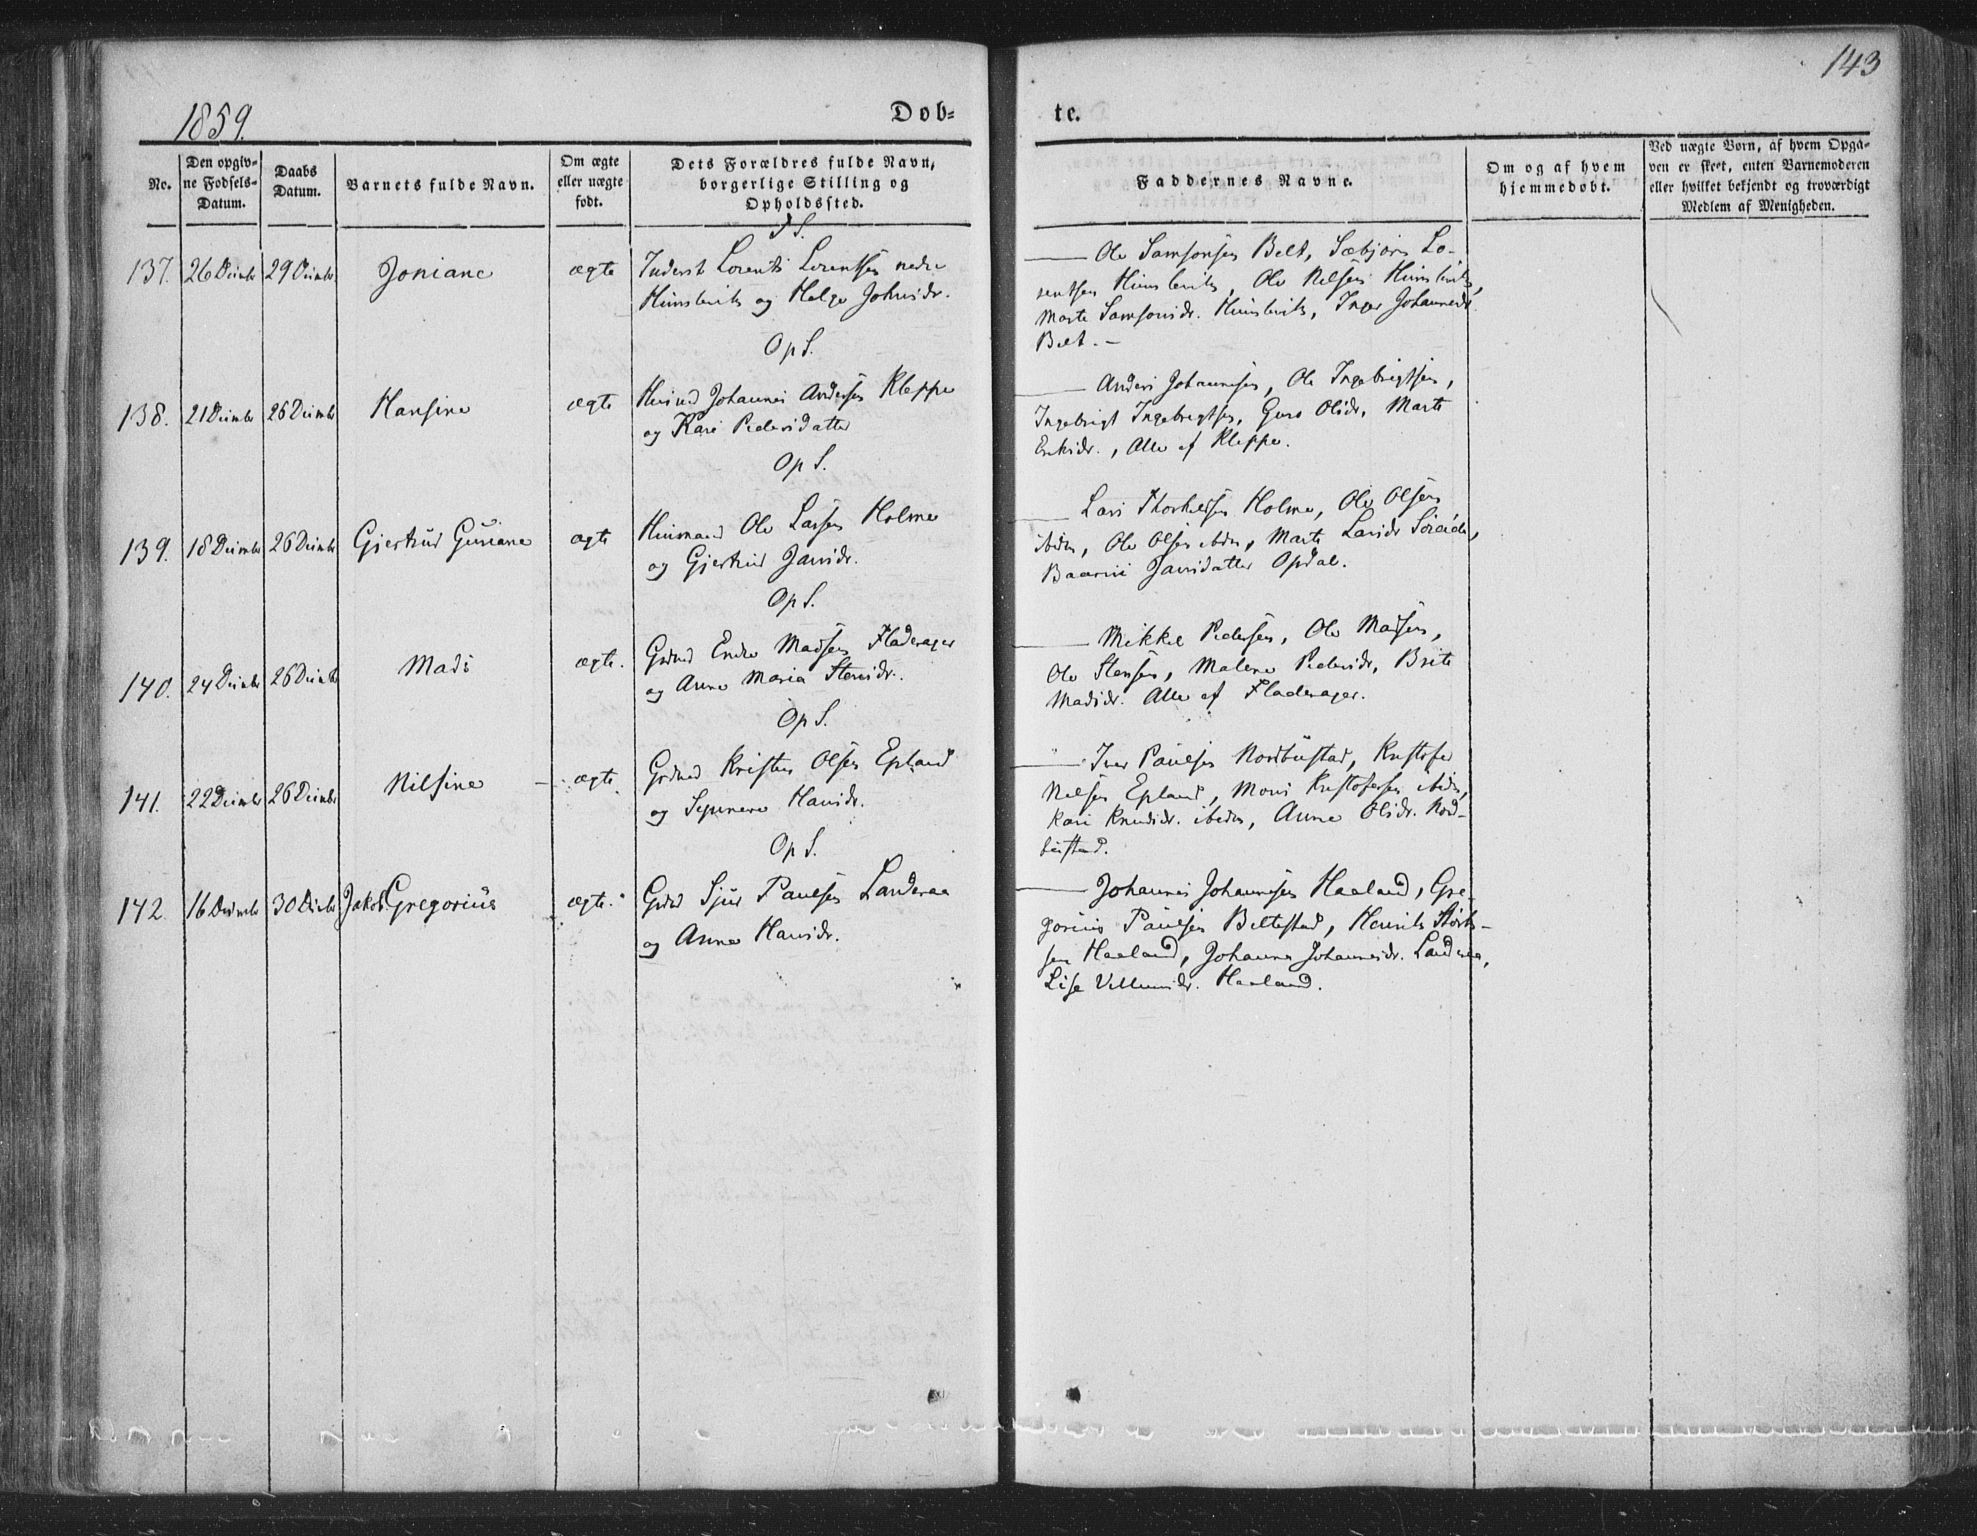 143
1859.
Dob=
te.
No.
Den opgiv-
ne Fodsels-
Datum.
Daabs
Datum.
Barnets fulde Navn.
Om ægte
eller uægte
født.
Dets Forældres fulde Navn,
borgerlige Stilling og
Opholdssted.
Faddernes Navne.
Om og af hvem
hjemmedobt.
Ved uægte Born, af hvem Opga-
ven er skeet, enten Barnemoderen
eller hvilket bekjendt og troværdigt
Medlem af Menigheden.
137. 26 Decmbr 29 Decmbr Joniane ægte
Inderst Lorents Lorentsen nedre
og Helge Johnsdr.
Ole Samsonsen Belt, Sæbjørn Lo-
rentsen Ole Nelsen
Marte Samsonsdr. Inger Johannesdr.
Belt. —
Op S.
138. 21 Decmbr 26 Decmbr Hansine ægte
Husmd Johannes Andersen Kleppe
og Kari Pedersdatter
Anders Johannesen, Ole Ingebrigtsen,
Ingebrigt Ingebrigtsen, Guro Olsdr, Marte
Eriksdr., Alle af Kleppe.
Op S.
139. 18 Decmbr 26 Decmbr Gjertrud Guriane ægte
Husmand Ole Larsen Holme
og Gjertrud Jansdr.
Lars Thorkelsen Holme, Ole Olsen
ibdm, Ole Olsen ibdm, Marte Larsdr
Jansdatter Opdal.
Op S.
140. 24 Decmbr 26 Decmbr Mads ægte.
Grdmd Endre Madsen Fladerager
og Anne Maria Stensdr.
Mikkel Pedersen, Ole Madsen,
Ole Stensen, Malene Pedersdr, Brite
Madsdr. Alle af Fladerager.
Op S.
141. 22 Decmbr 26 Decmbr Nilsine ægte.
Grdmd Kristen Olsen Epland
og Hansdr.
Iver Paulsen Nordbustad, Kristofer
Nelsen Epland, Mons Kristofersen ibdm,
Kari Knudsdr. ibedm, Anne Olsdr. Nord-
bustad.
Op S.
142. 16 Decmbr 30 Decbr Jakob Gregorius ægte.
Grdmd Sjur Paulsen Landeraa
og Anne Hansdr.
Johannes Johannesen Haaland, Gre-
gorius Paulsen Beltestad, Henrik
sen Haaland, Johanna Johannesdr. Landeraa,
Lise Villumsdr. Haaland.